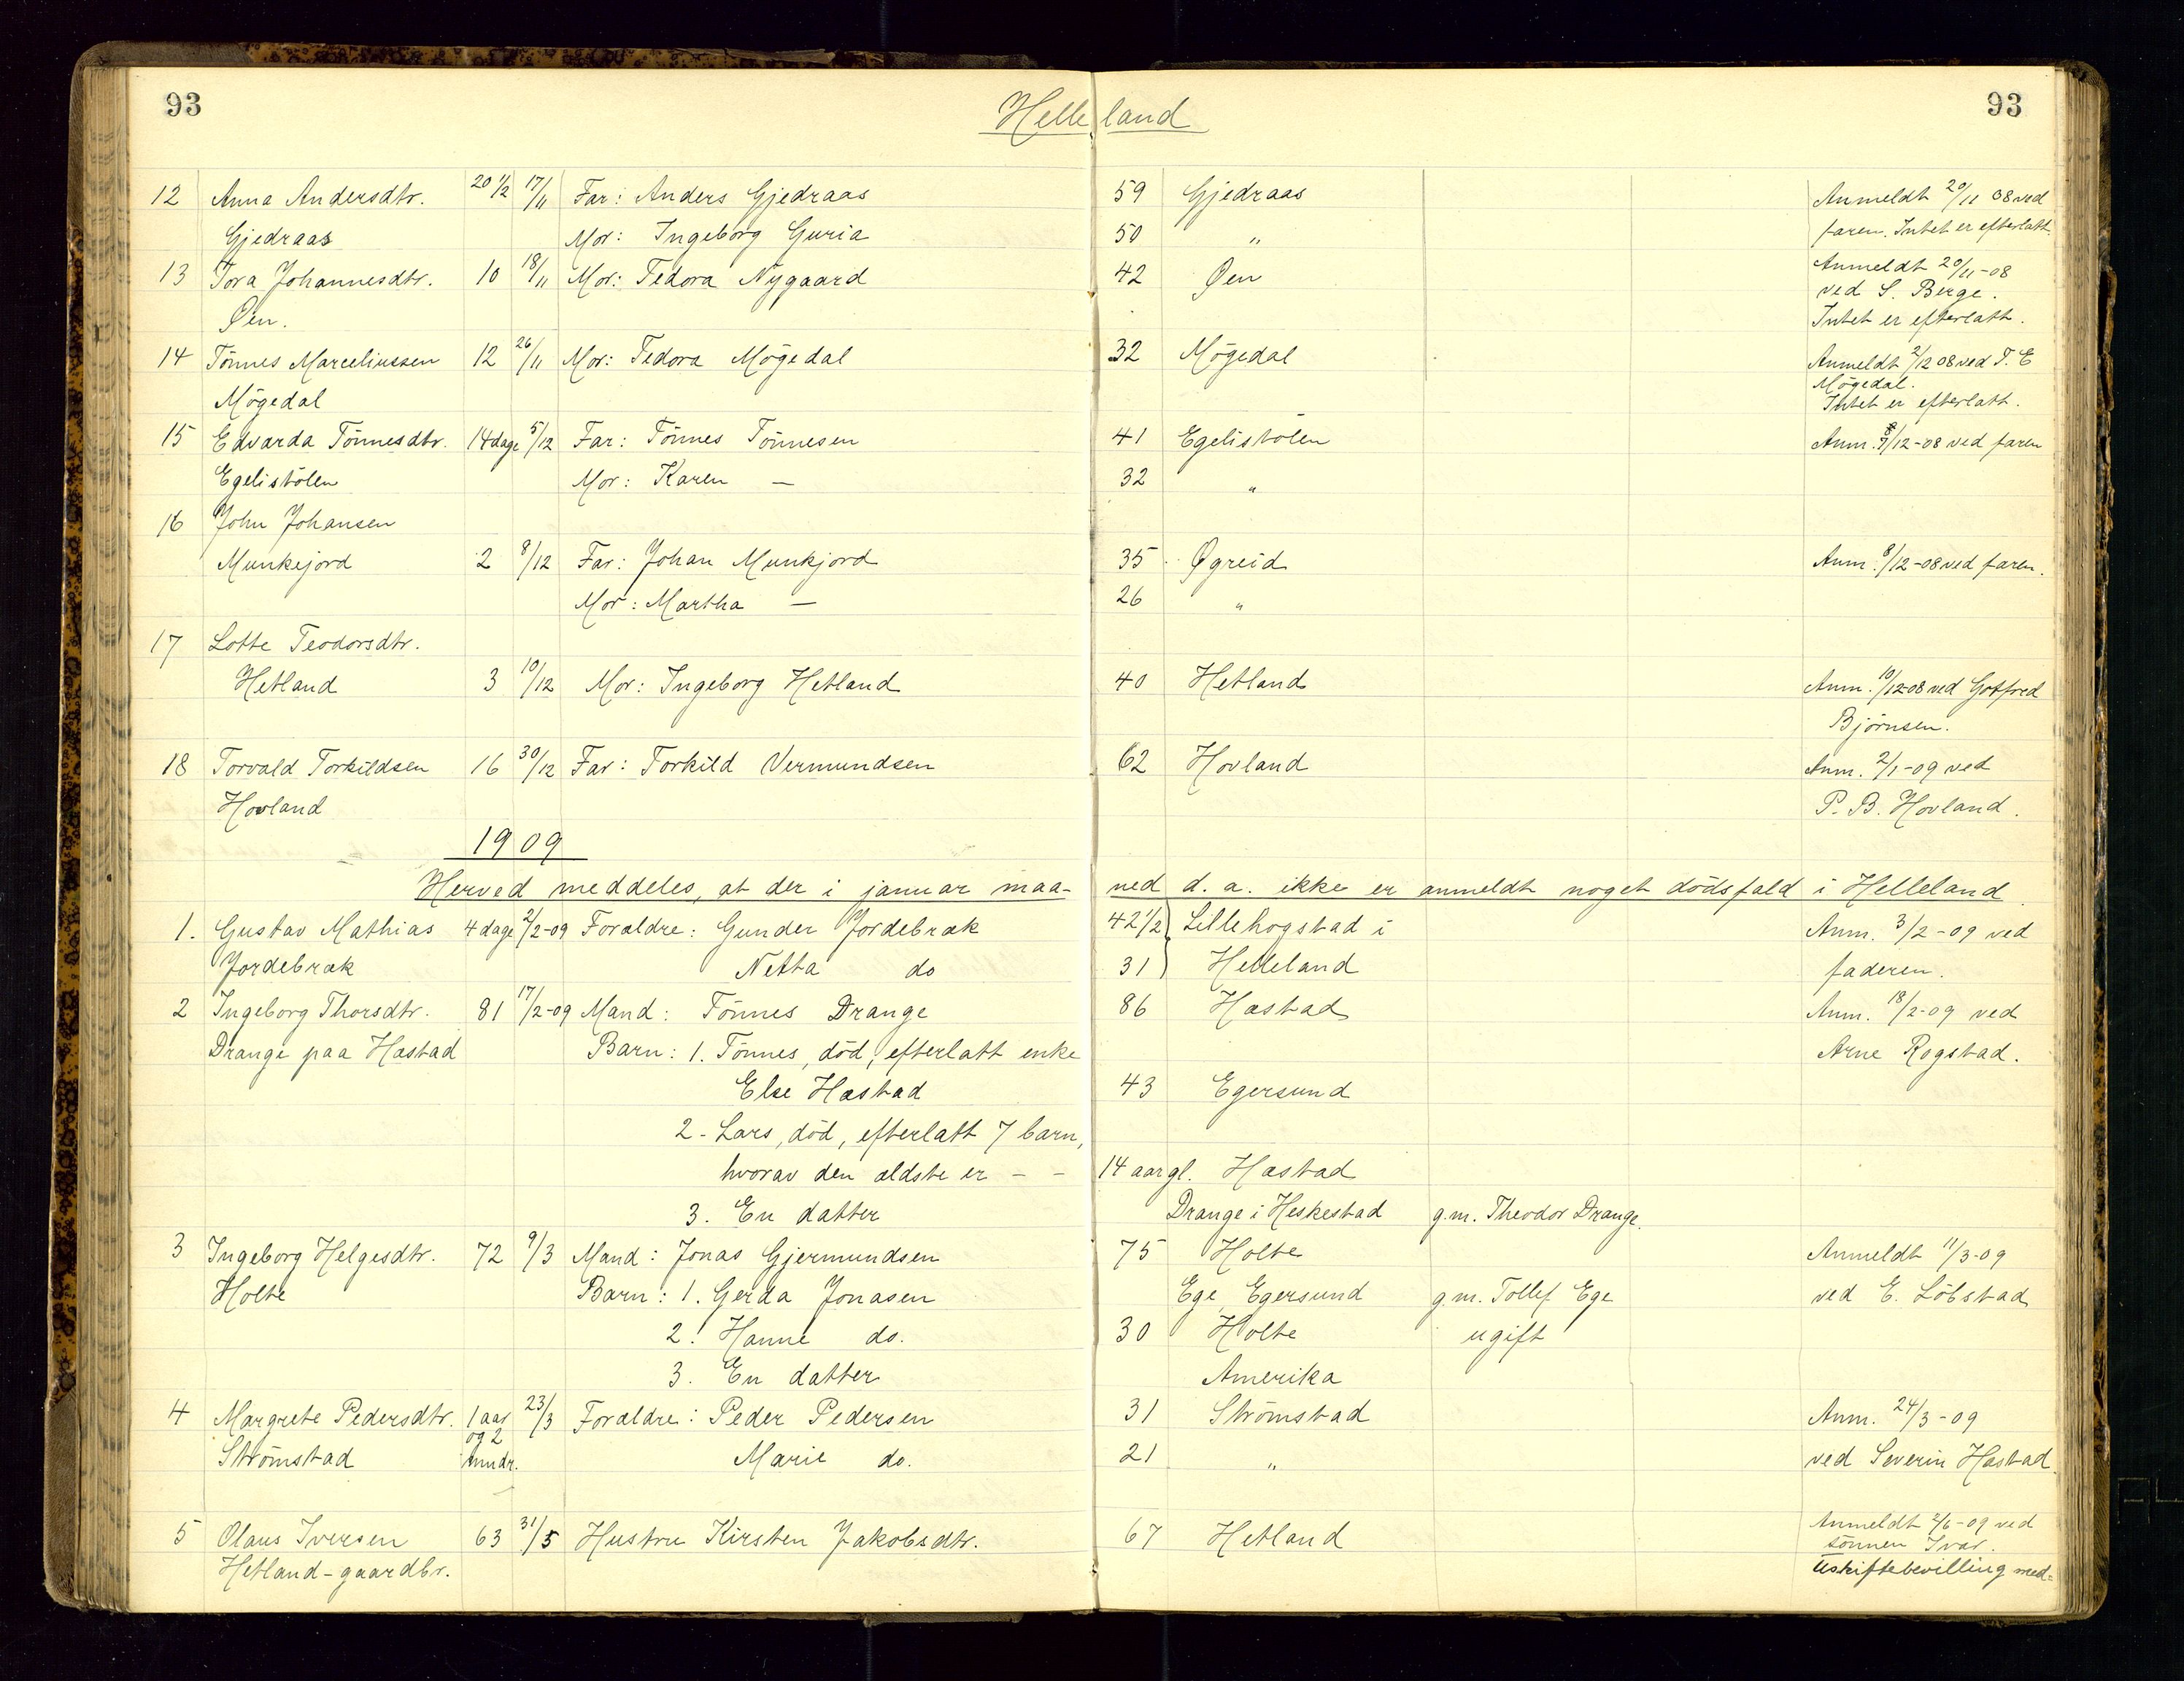 93
Helleland
93
12 Anna Andersdtr. 20 1/2 17/11 Far: Anders Gjedraas 59 Gjedraas Anmeldt 20/11 08 ved
Gjedraas Mor: Ingeborg Guria 50 " faren. Intet er efterlatt.
13 Tora Johannesdtr. 10 18/11 Mor: Tedora Nygaard 42 Øen Anmeldt 20/11-08
ved S. Berge.
Øen. Intet er efterlatt.
14 Tönnes Marceliussen 12 26/11 Mor: Tedora Mögedal 32 Mögedal Anmeldt 2/12 08 ved T. E
Mögedal.
Mögedal Intet er efterlatt.
15 Edvarda Tönnesdtr. 14 dage 5/12 Far: Tönnes Tönnesen 41 Egelistölen Anm. /12-08 ved faren
Egelistölen Mor: Karen — 32 "
16 John Johansen
Munkejord 2 8/12 Far: Johan Munkjord 35 Øgreid Anm. 8/12-08 ved faren.
Mor: Martha — 26 "
17 Lotte Teodorsdtr.
Hetland 3 10/12 Mor: Ingeborg Hetland 40 Hetland Anm. 10/12-08 ved Gotfred
Björnsen.
18 Torvald Torkildsen 16 30/12 Far: Torkild Vermundsen 62 Hovland Anm. 2/1-09 ved
Hovland P. B. Hovland.
1909
Herved meddeles, at der i januar maa- ned d. a. ikke er anmeldt noget dödsfald i Helleland.
1. Gustav Mathias 4 dage 2/2-09 Forældre: Gunder Jordebræk 42 1/2 Lillehogstad i Anm. 3/2-09 ved
Jordebræk Netta do 31 Helleland faderen.
2 Ingeborg Thorsdtr. 81 17/2-09 Mand: Tönnes Drange 86 Hæstad Anm. 18/2-09 ved
Drange paa Hæstad Barn: 1. Tönnes, död, efterlatt enke Arne Rogstad.
Else Hæstad 43 Egersund
2- Lars, död, efterlatt 7 barn,
hvorav den ældste er - - 14 aar gl. Hæstad
3. En datter Drange i Heskestad g.m. Theodor Drange.
3 Ingeborg Helgesdtr. 72 9/3 Mand: Jonas Gjermundsen 75 Holte Anmeldt 11/3-09
Holte Barn: 1. Gerda Jonasen Ege Egersund g.m. Tollef Ege ved E. Löbstad
2. Hanne do. 30 Holte ugift
3. En datter Amerika
4 Margrete Pedersdtr. 1 aar og 2 mndr. 23/3 Forældre: Peder Pedersen 31 Strömstad Anm. 24/3-09
Strömstad Marie do. 21 " ved Severin Hæstad.
5 Olaus Iversen 63 31/5 Hustru Kirsten Jakobsdtr. 67 Hetland Anmeldt 2/6-09 ved
sönnen Ivar.
Hetland-gaardbr. Uskiftebevilling med-